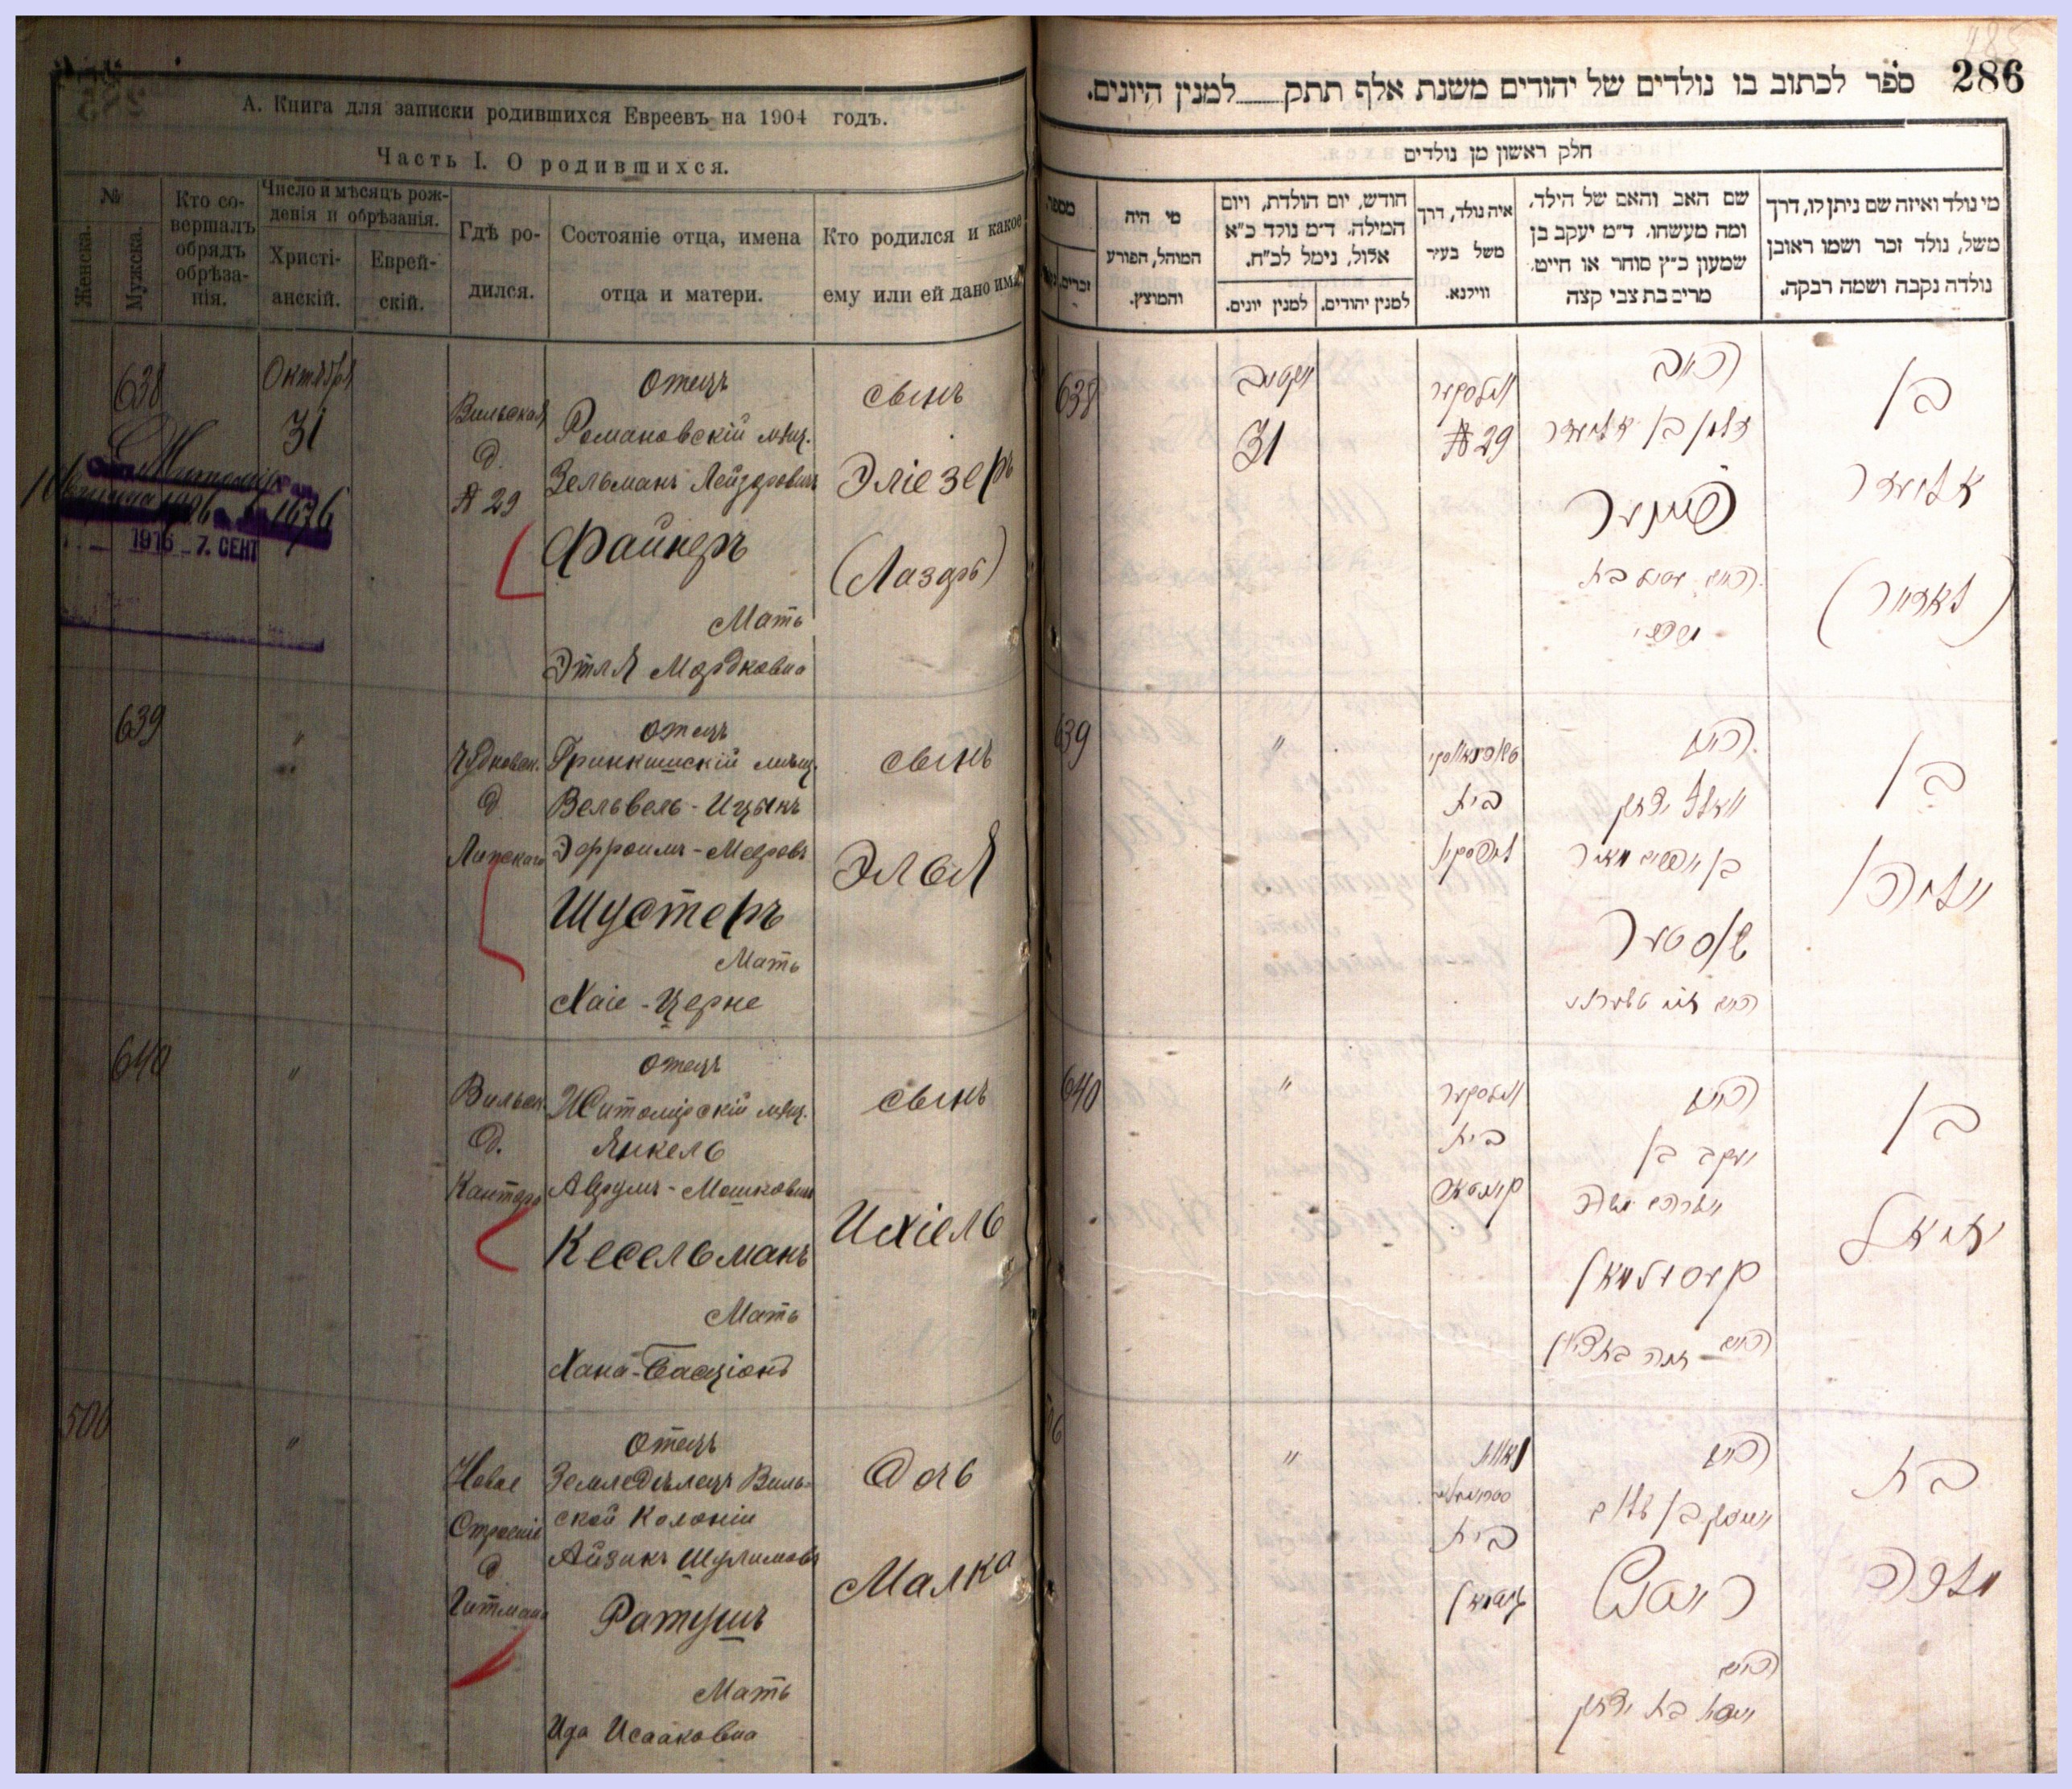 А. Книга для записки родившихся Евреевъ на 1904 годъ.
Часть I. О родившихся.
№
Женска.
Мужска.
Кто со-
вершалъ
обрядъ
обрѣза-
нія.
Число и мѣсяцъ рож-
денія и обрѣзанія.
Христі-
анскій.
Еврей-
скій.
Гдѣ ро-
дился.
Состояніе отца, имена
отца и матери.
Кто родился и какое
ему или ей дано имя.
638
Октября
31
1916 7. СЕНТ
Вильская
д.
№ 29
Отецъ
Романовскій мѣщ.
Зельманъ Лейзоровичъ
Файнеръ
Мать
Этля Мордковна
сынъ
Эліезеръ
(Лазарь)
639
"
Чудновск.
д.
Липскаго
Отецъ
Гринкишскій мѣщ.
Вельвель-Ицыкъ
Эфроимъ-Мееровъ
Шустеръ
Мать
Хаіе-Церне
сынъ
Элья
640
"
Вильск.
д.
Кантора
Отецъ
Житомірскій мѣщ.
Янкель
Аврумъ-Мошковичъ
Кесельманъ
Мать
Хана-Басціонъ
сынъ
Ихіель
506
"
Новое
Строеніе
д.
Гитмана
Отецъ
Земледѣлецъ Виль-
ской Колоніи
Айзикъ Шулимовъ
Ратушъ
Мать
Ида Исааковна
Дочь
Малка
286
ספר לכתוב בו נולדים של יהודים משנת אלף תתק למנין היונים.
חלק ראשון מן נולדים
מי נולד ואיזה שם ניתן לו, דרך
משל, נולד זכר ושמו ראובן
נולדה נקבה ושמה רבקה.
שם האב והאם של הילד.
ומה מעשהו. ד״מ יעקב בן
שמעון כ״ץ סוחר או חייט.
מרים בת צבי קצה
איה נולד, דרך
משל בעיר
ווילנא.
חודש, יום הולדת, ויום
המילה. ד״מ נולד כ״א
אלול, נימל לכ״ח.
למנין יהודים.
למנין יונים.
מי היה
המוהל, הפורע
והמוצץ.
מספר
זכרים.
בן
אליעזר
(לאזאר)
האב
זלמן בן אליעזר
פיינער
ווילסקער
№ 29
אקטאב
31
638
בן
אליהו
האב
וואלף יצחק
בן אפרים מאיר
שוסטער
האם חיה טשערנע
בית
"
639
בן
יחיאל
האב
יעקב בן
אברהם משה
קעסעלמאן
האם חנה בת ציון
ווילסקער
בית
קאנטאר
"
640
בת
מלכה
האב
אייזיק בן שלום
ראטוש
האם
אידא בת יצחק
בית
"